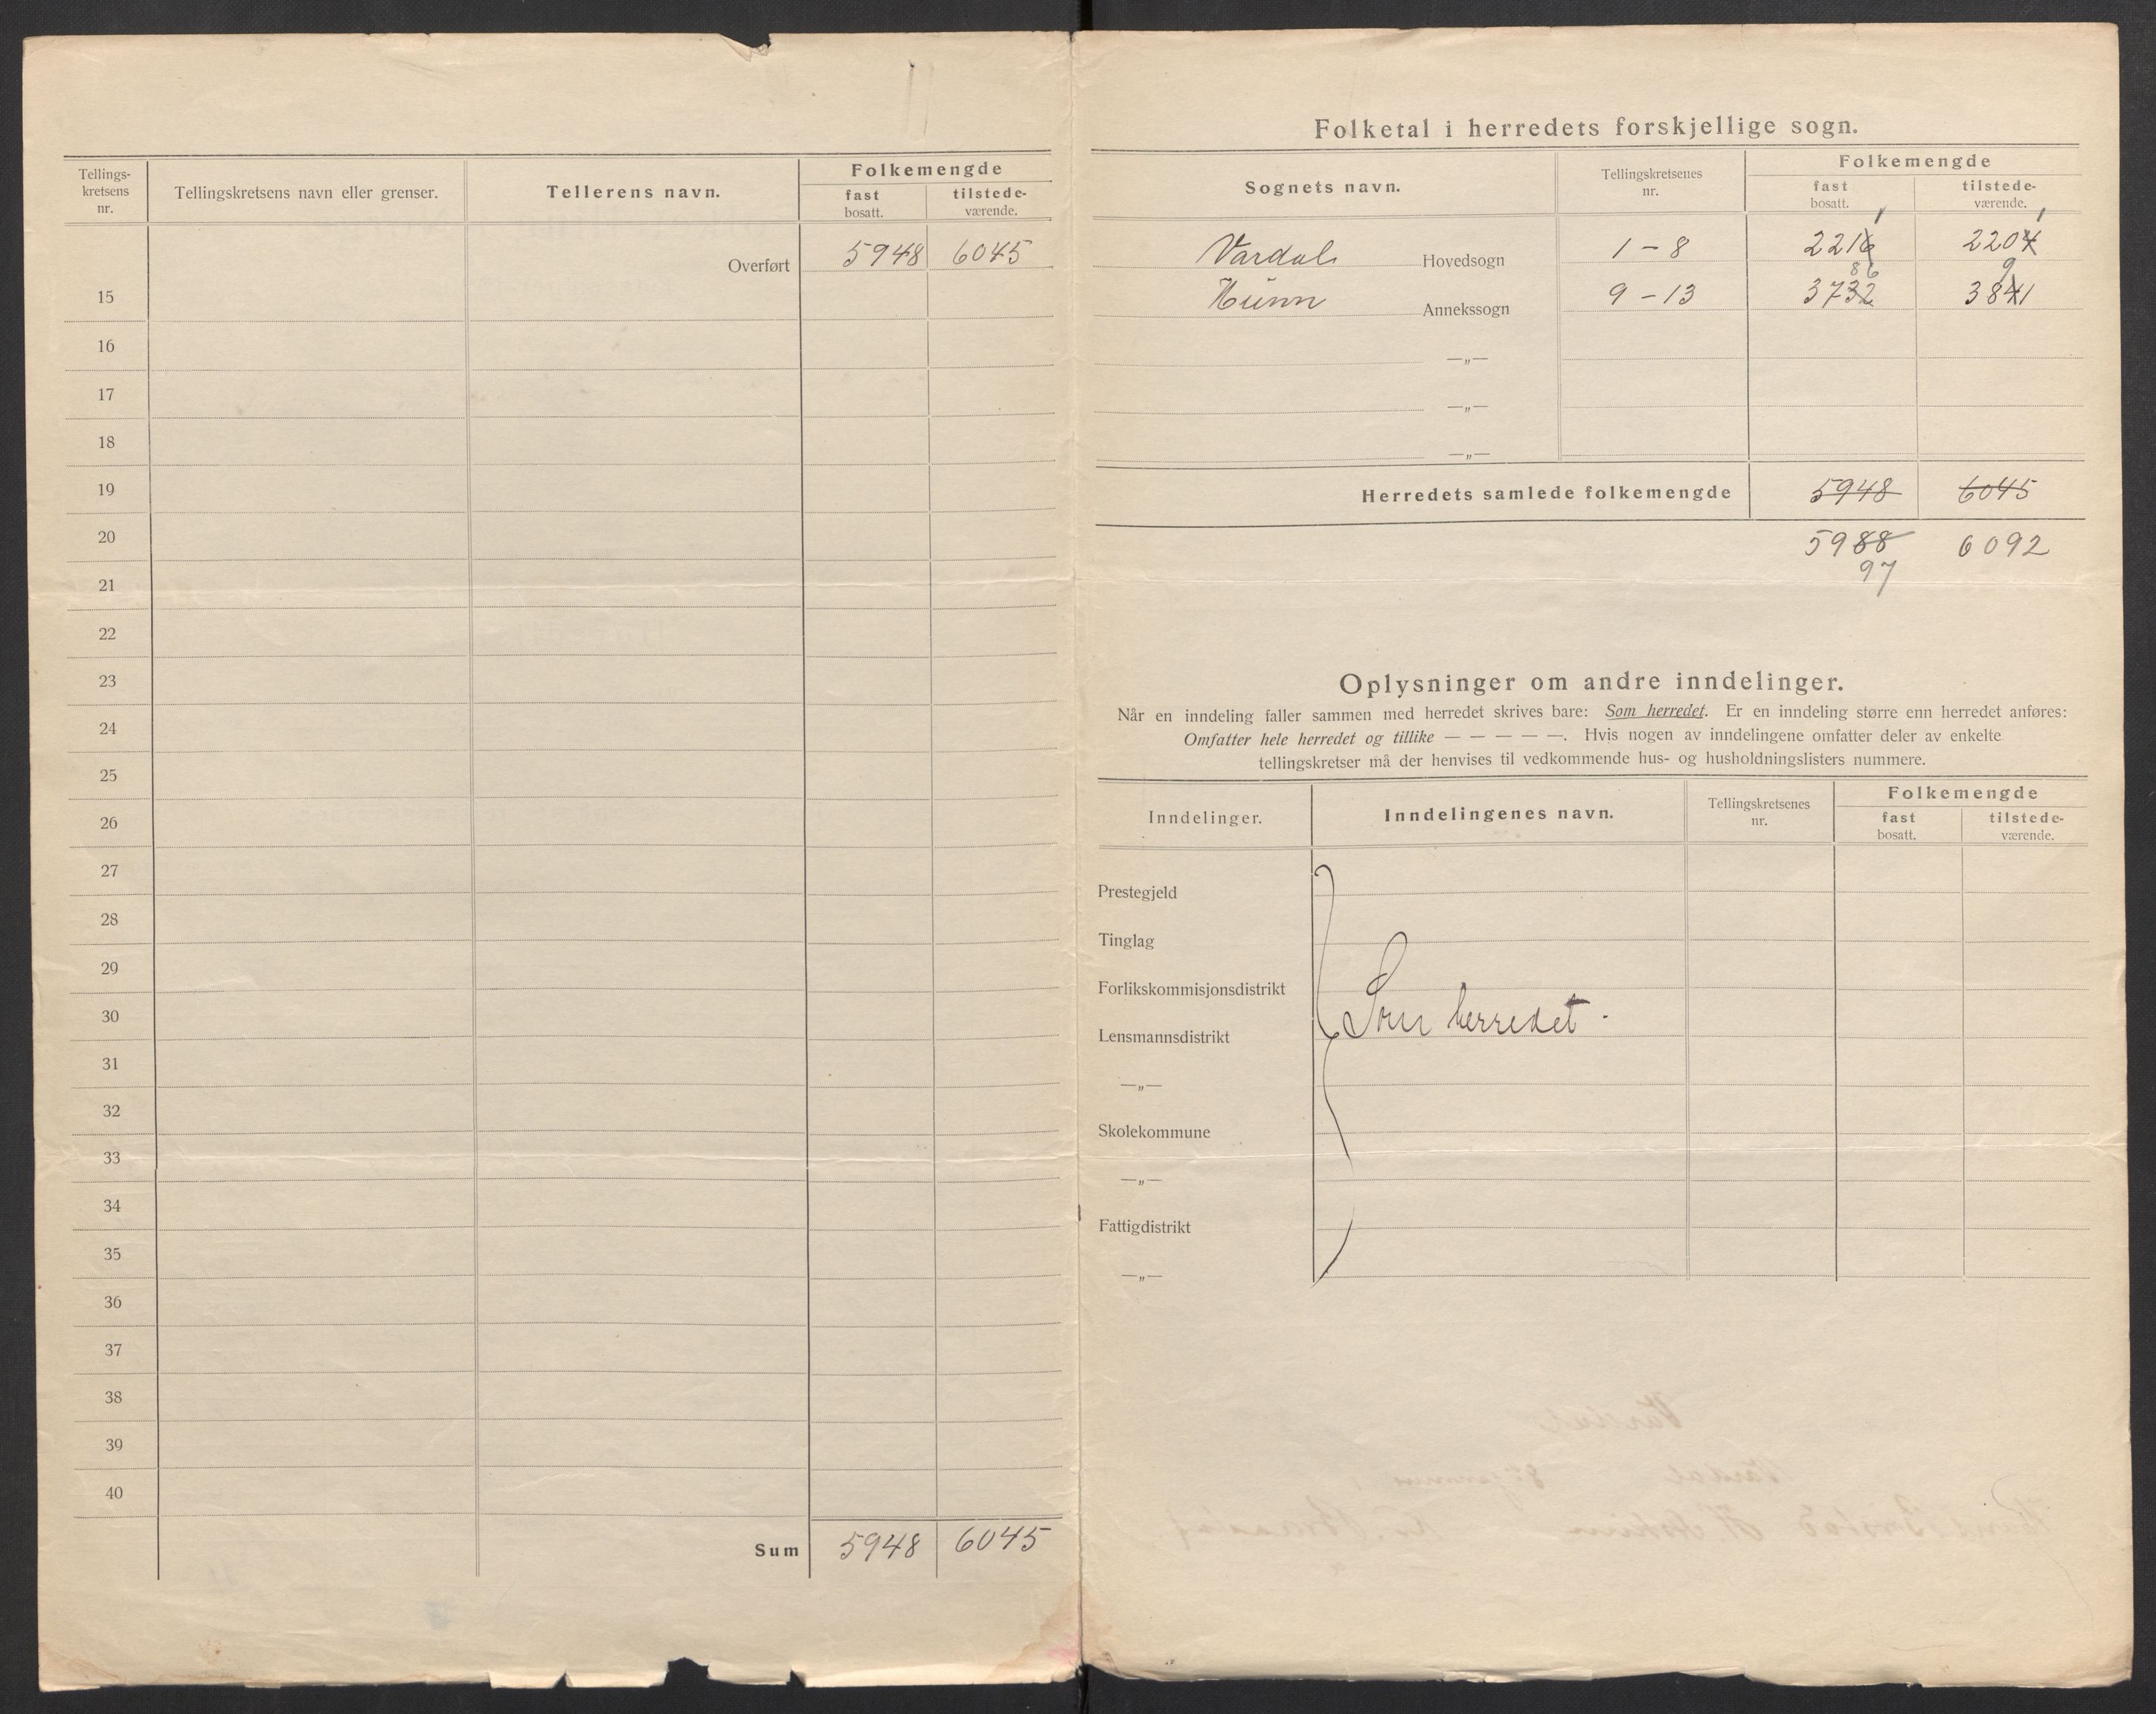 Tellings-
kretsens
nr.
Tellingskretsens navn eller grenser.
Tellerens navn.
Folkemengde
fast
bosatt.
tilstede-
værende.
Overført 5948 6045
15
16
17
18
19
20
21
22
23
24
25
26
27
28
29
30
31
32
33
34
35
36
37
38
39
40
Sum 5948 6045
Folketal i herredets forskjellige sogn.
Sognets navn.
Tellingskretsenes
nr.
Folkemengde
fast
bosatt.
tilstede-
værende.
1 1
Vardal Hovedsogn 1-8 2216 2204
86 9
Hunn Annekssogn 9-13 3732 3841
—„—
—„—
—„—
Herredets samlede folkemengde 5948 6045
5988 6092
97
Oplysninger om andre inndelinger.
Når en inndeling faller sammen med herredet skrives bare: Som herredet. Er en inndeling større enn herredet anføres:
Omfatter hele herredet og tillike — — — — —. Hvis nogen av inndelingene omfatter deler av enkelte
tellingskretser må der henvises til vedkommende hus- og husholdningslisters nummere.
Inndelinger.
Inndelingenes navn.
Tellingskretsenes
nr.
Folkemengde
fast
bosatt.
tilstede-
værende.
Prestegjeld
Tinglag
Forlikskommisjonsdistrikt
Som herredet.
Lensmannsdistrikt
—„—
Skolekommune
—„—
Fattigdistrikt
—„—